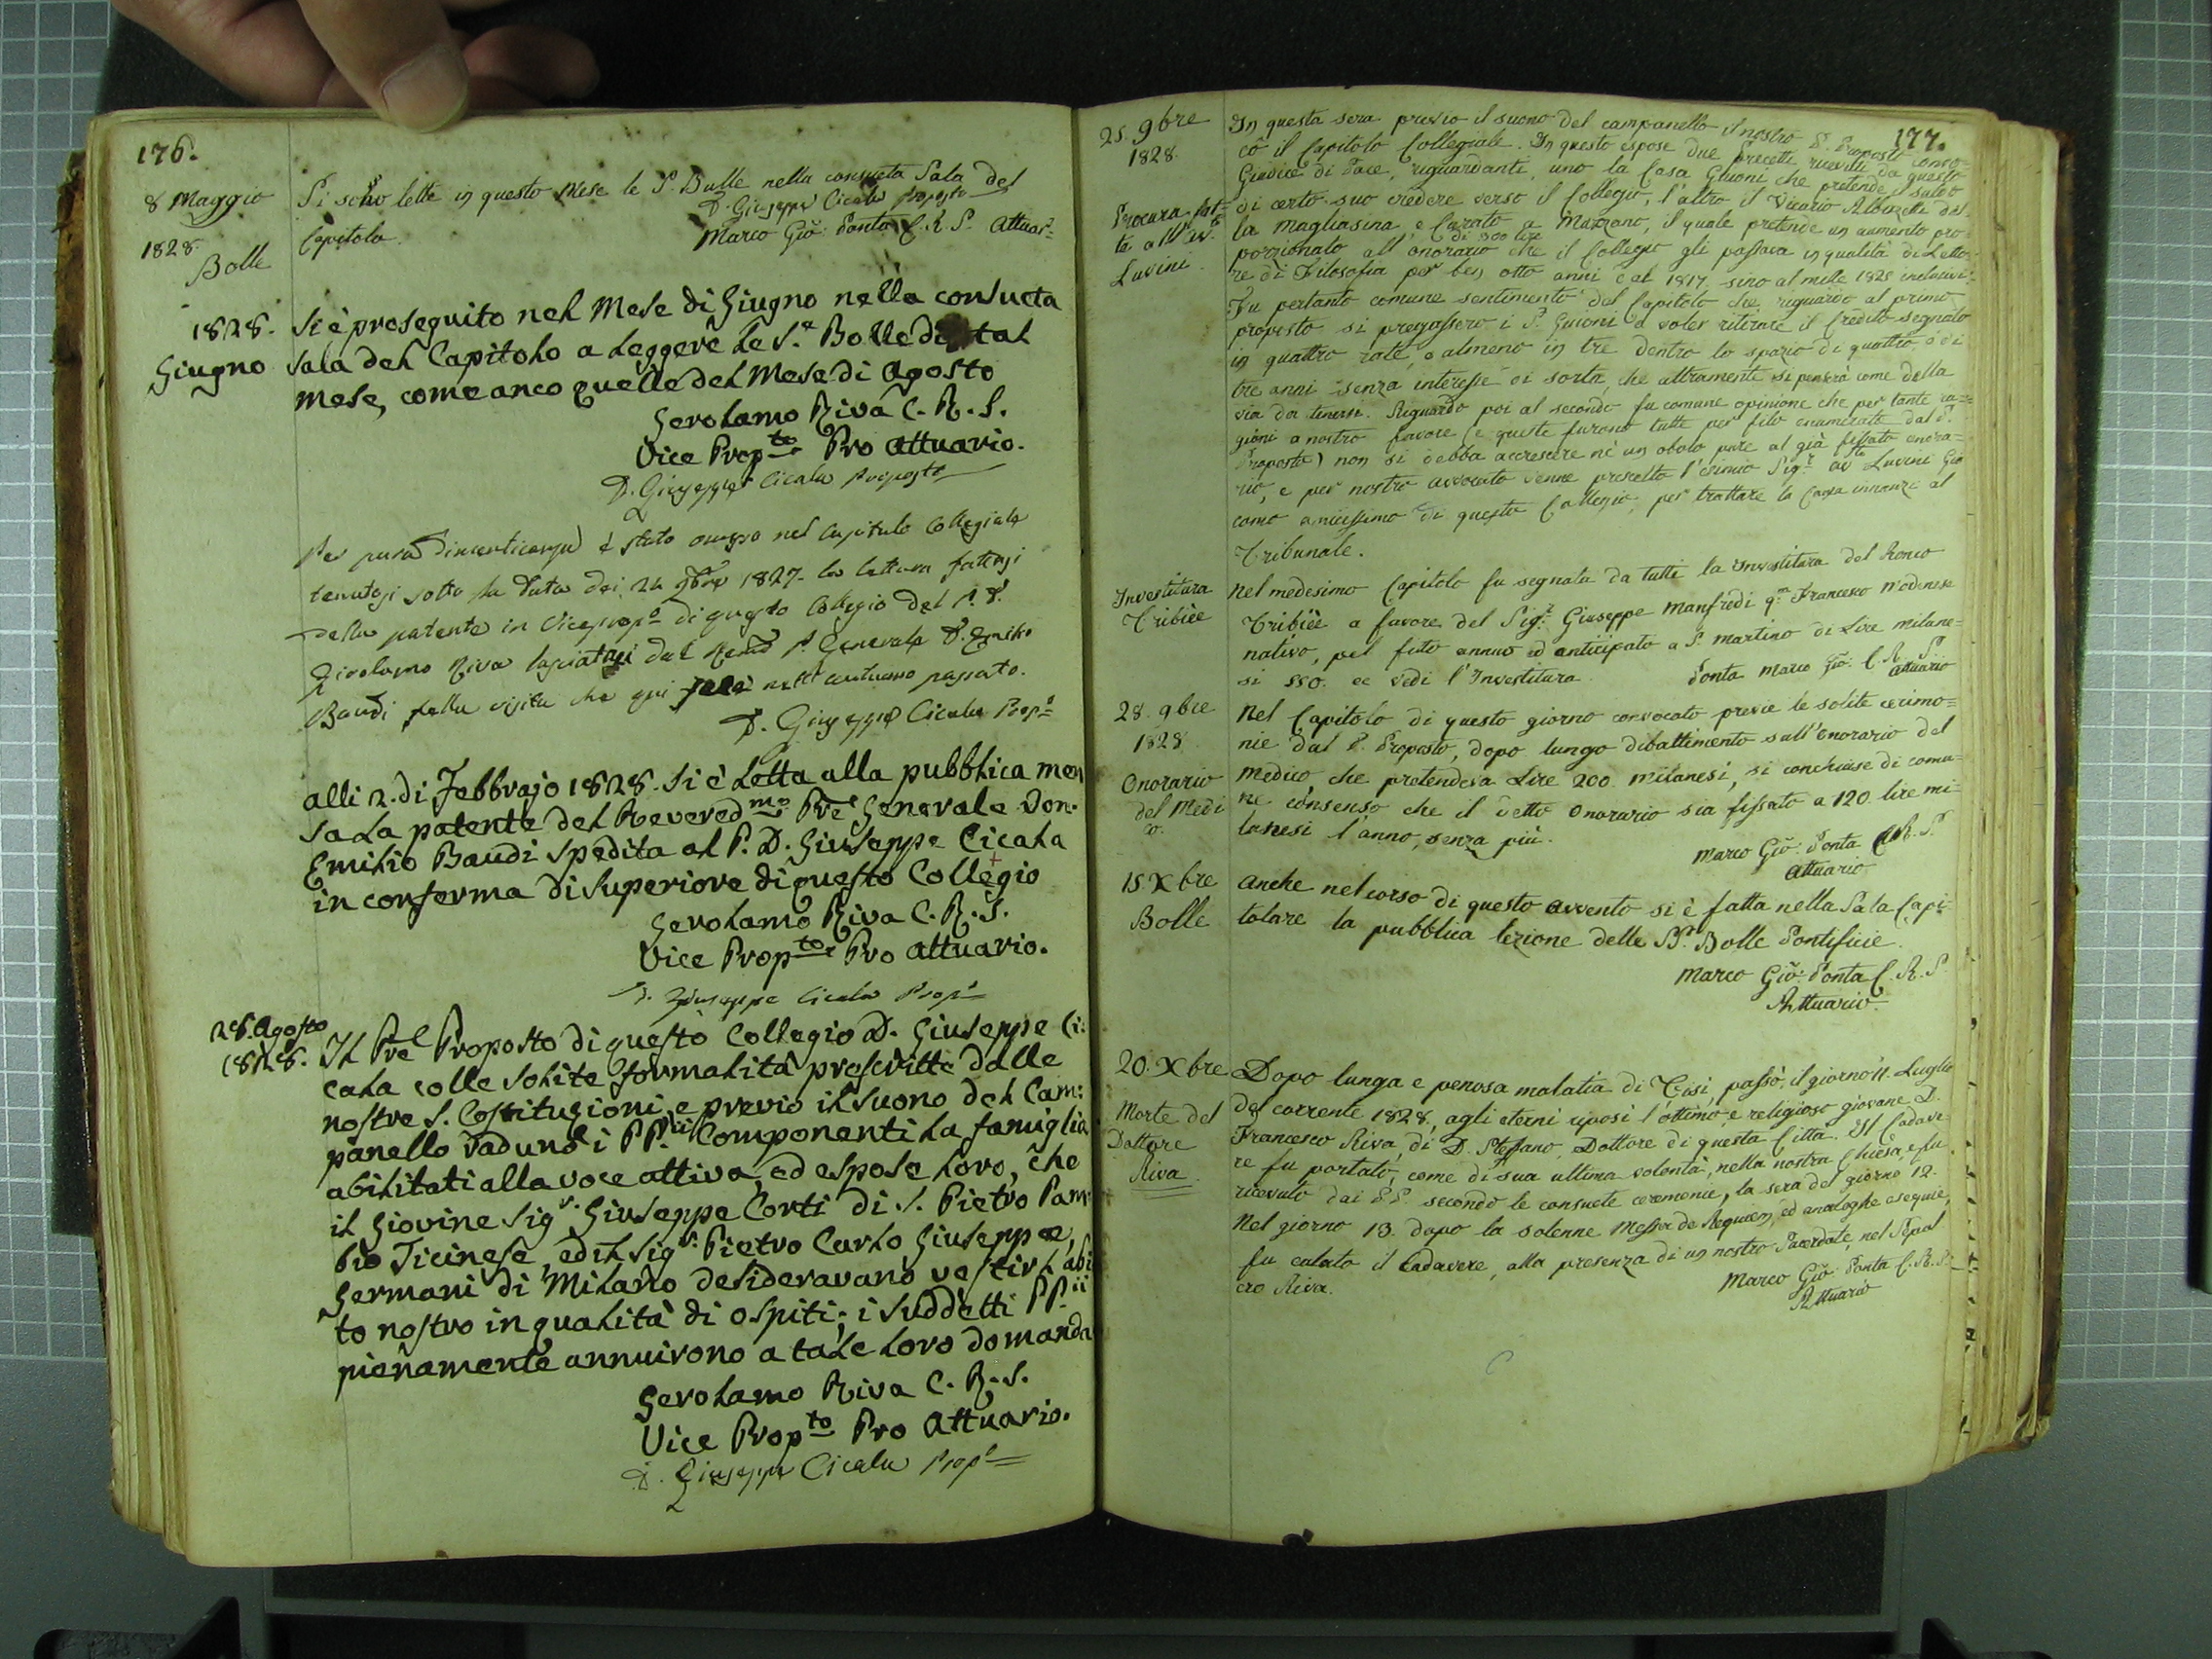 176.
8 Maggio
1828.
Bolle
Si sono lette in questo Mese le S. Bulle nella consueta Sala del
Capitolo.
D. Giuseppe Cicala Proposto
Marco Gio: Ponta C. R. S. Attuar.º
1828.
Giugno
Si è proseguito nel Mese di Giugno nella consueta
Sala del Capitolo a leggere le S.e Bolle di tal
Mese, come anco quelle del Mese di Agosto
Gerolamo Riva C. R. S.
Vice Prop.to Pro Attuario.
D. Giuseppe Cicala Proposto
Per pura dimenticanza è stato omesso nel Capitolo Collegiale
tenutosi sotto la data dei 24 9bre 1827. la lettura fattasi
della patente in Viceprop.º di questo Collegio del P. D.
Girolamo Riva lasciatagi dal Rev.mo P. Generale D. Emilio
Baudi nella visita che qui fece nell'autunno passato.
D. Giuseppe Cicala Prop.º
Alli 2. di Febbrajo 1828. Si è letta alla pubblica men
sa la patente del Revered.mo Pre Generale Don.
Emilio Baudi spedita al P. D. Giuseppe Cicala
in conferma di Superiore di questo Collegio
Gerolamo Riva C. R. S.
Vice Prop.to Pro Attuario.
D. Giuseppe Cicala Prop.º
28. Agosto
1828.
Il Pre Proposto di questo Collegio D. Giuseppe Ci:
cala colle solite formalità prescritte dalle
nostre S. Costituzioni, e previo il suono del Cam:
panello radunò i PP.ri Componenti la famiglia
abilitati alla voce attiva, ed espose loro, che
il Giovine Sig.r Giuseppe Corti di S. Pietro Pam
bio Ticinese, ed il Sig.r Pietro Carlo Giuseppe
Germani di Milano desideravano vestir l'abi
to nostro in qualità di ospiti; i suddetti PP.ri
pienamente annuirono a tale loro domanda
Gerolamo Riva C. R. S.
Vice Prop.to Pro Attuario.
D. Giuseppe Cicala Prop.º
177.
25. 9bre
1828.
Procura fat-
ta all'Av.to
Luvini.
In questa sera previo il suono del campanello il nostro P. Proposto convo-
cò il Capitolo Collegiale. In questo espose due Precetti ricevuti da questo
Giudice di Pace, riguardanti, uno la Casa Guioni che pretende il saldo
di certo suo credere verso il Collegio, l'altro il Vicario Albuzzi del-
la Magliasina, e Curato a Mazzano, il quale pretende un aumento pro-
porzionato all'onorario di 300 lire che il Collegio gli passava in qualità di Letto-
re di Filosofia per ben otto anni è al 1817. sino al mille 1825 inclusivi:
Fu pertanto comune sentimento del Capitolo che riguardo al primo
proposto si pregassero i S. Guioni a voler ritirare il Credito segnato
in quattro rate, o almeno in tre dentro lo spazio di quattro o di
tre anni senza interesse di sorta, che altramente si penserà come della
via da tenersi. Riguardo poi al secondo fu comune opinione che per tante ra-
gioni a nostro favore (e queste furono tutte per filo enumerate dal P.
Proposto) non si debba accrescere nè un obolo pure al già fissato onora-
rio, e per nostro avvocato venne prescelto l'esimio Sig.r Av.to Luvini Gia
como amicissimo di questo Collegio, per trattare la Causa innanzi al
Tribunale.
Investitura
Tribièe
Nel medesimo Capitolo fu segnata da tutti la Investitura del Ronco
Tribièe a favore del Sig.r Giuseppe Manfredi q.m Francesco Modenese
nativo, pel fitto annuo ed anticipato a S. Martino di Lire milane-
si 550. ec vedi l'Investitura.
Ponta Marco Gio: C. R. S.
Attuario
28. 9bre
1828
Onorario
del Medi
co.
Nel Capitolo di questo giorno convocato previe le solite cerimo-
nie dal P. Proposto, dopo lungo dibattimento sull'onorario del
Medico che pretendeva Lire 200 milanesi, si conchiuse di comu-
ne consenso che il detto Onorario sia fissato a 120 lire mi-
lanesi l'anno, senza più.
Marco Gio: Ponta C. R. S.
Attuario
15. Xbre
Bolle
Anche nel corso di questo Avvento si è fatta nella Sala Capi-
tolare la pubblica lezione delle SS. Bolle Pontificie.
Marco Gio: Ponta C. R. S.
Attuario.
20. Xbre
Morte del
Dottore
Riva.
Dopo lunga e penosa malatia di Tisi, passò, il giorno 11. Luglio
del corrente 1828, agli eterni riposi l'ottimo, e religioso giovane D.
Francesco Riva, di D. Steffano, Dottore di questa Città. Il Cadave-
re fu portato, come di sua ultima volontà, nella nostra Chiesa, e fu
ricevuto dai PP. secondo le consuete ceremonie, la sera del giorno 12.
Nel giorno 13. dopo la solenne Messa de Requiem, ed analoghe esequie,
fu calato il Cadavere, alla presenza di un nostro Sacerdote, nel Sepol
cro Riva.
Marco Gio: Ponta C. R. S.
Attuario